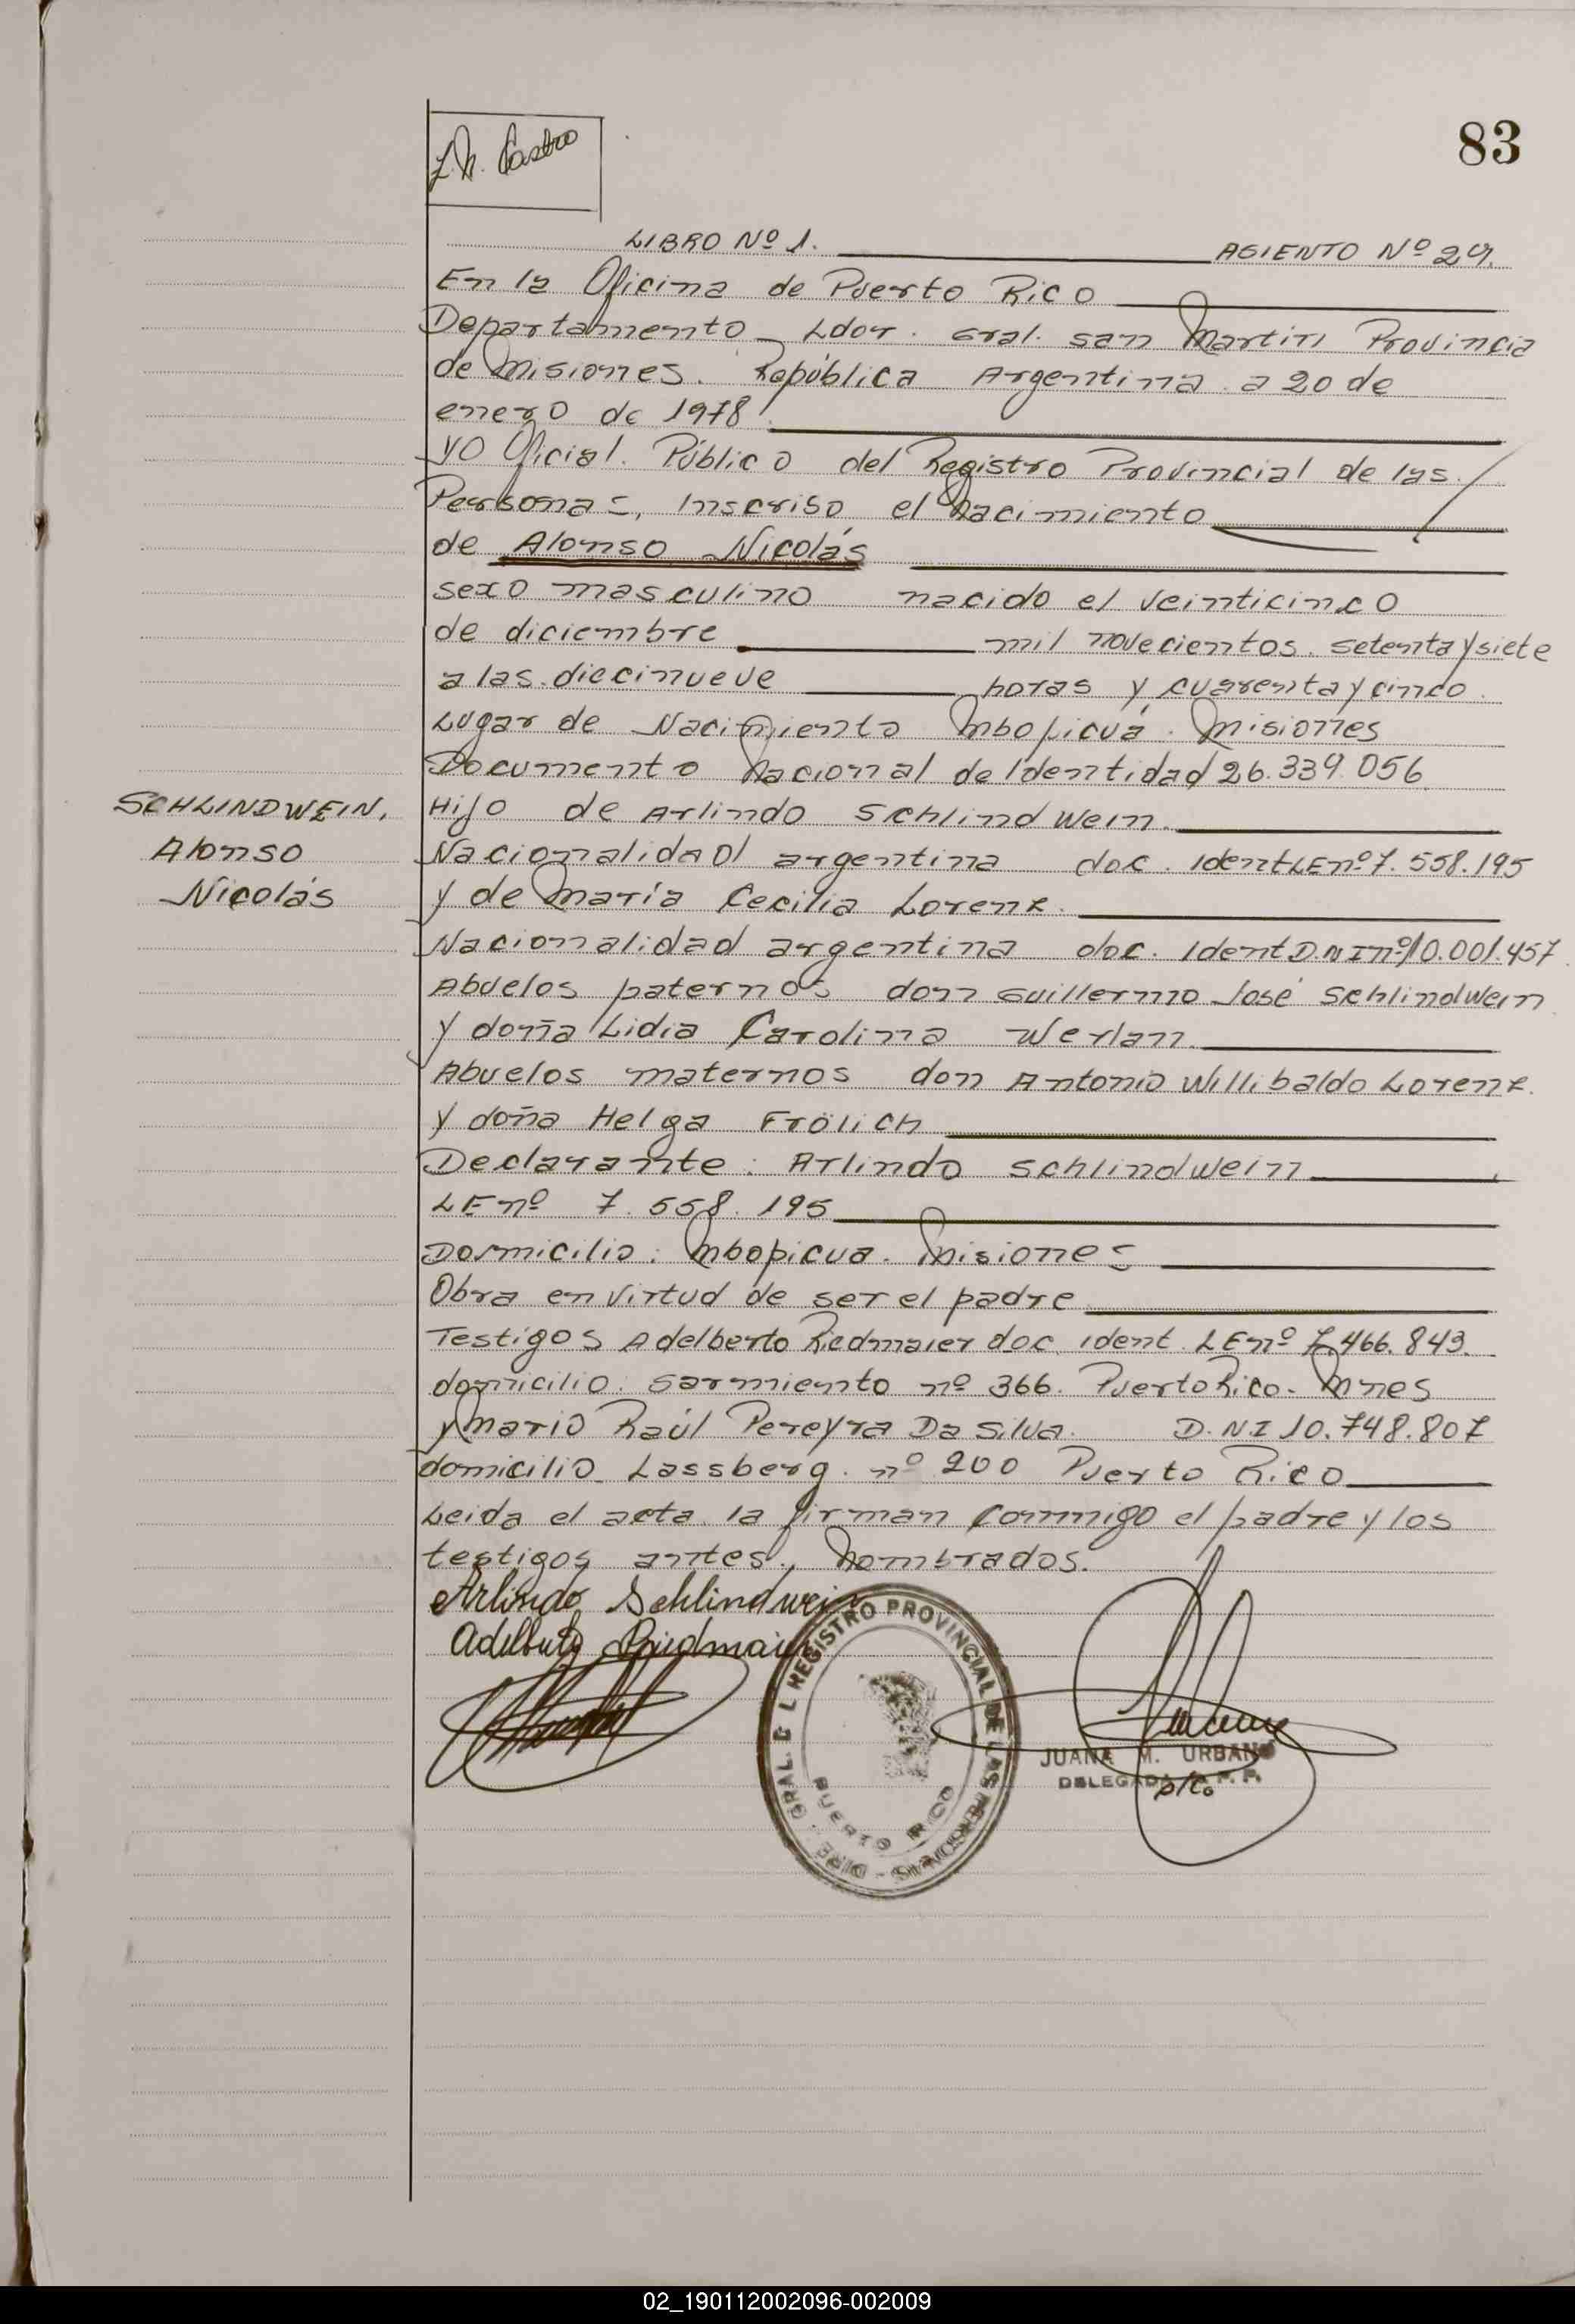 83
L.N. Castro
LIBRO Nº 1. ASIENTO Nº 29.
En la Oficina de Puerto Rico
Departamento Ldor. Gral. San Martín Provincia
de Misiones. República Argentina a 20 de
enero de 1978
yo Oficial. Público del Registro Provincial de las
Personas, Inscribo, el Nacimiento
de Alonso Nicolás
sexo masculino nacido el veinticinco
de diciembre mil novecientos. setenta y siete
a las. diecinueve horas y cuarenta y cinco.
Lugar de Nacimiento Mbopicuá. Misiones
Documento Nacional de Identidad 26.339.056
SCHLINDWEIN, Hijo de Arlindo Schlindwein.
Alonso Nacionalidad argentina doc. Ident LE nº 7.558.195
Nicolás y de María Cecilia Lorenz.
Nacionalidad argentina doc. Ident D.N I nº 10.001.457
Abuelos paternos don Guillermo José Schlindwein
y doña Lidia Carolina Werlan.
Abuelos maternos don Antonio Willibaldo Lorenz.
y doña Helga Frölich
Declarante: Arlindo Schlindwein
LE nº 7.558.195
Domicilio: Mbopicua. Misiones
Obra en virtud de ser el padre
Testigos Adelberto Riedmaier doc. ident. LE nº 7.466.843.
domicilio: Sarmiento nº 366. Puerto Rico. Mnes
y Mario Raúl Pereyra Da Silva. D.N.I 10.748.807
domicilio Lassberg. nº 200 Puerto Rico
Leida el acta. la firman conmigo el padre y los
testigos antes, nombrados.
Arlindo Schlindwein
Adelberto Riedmaier
DIRE. GRAL. DEL REGISTRO PROVINCIAL DE LAS PERSONAS
PUERTO RICO
JUANA M. URBANO
DELEGADA R. P. P.
02_190112002096-002009